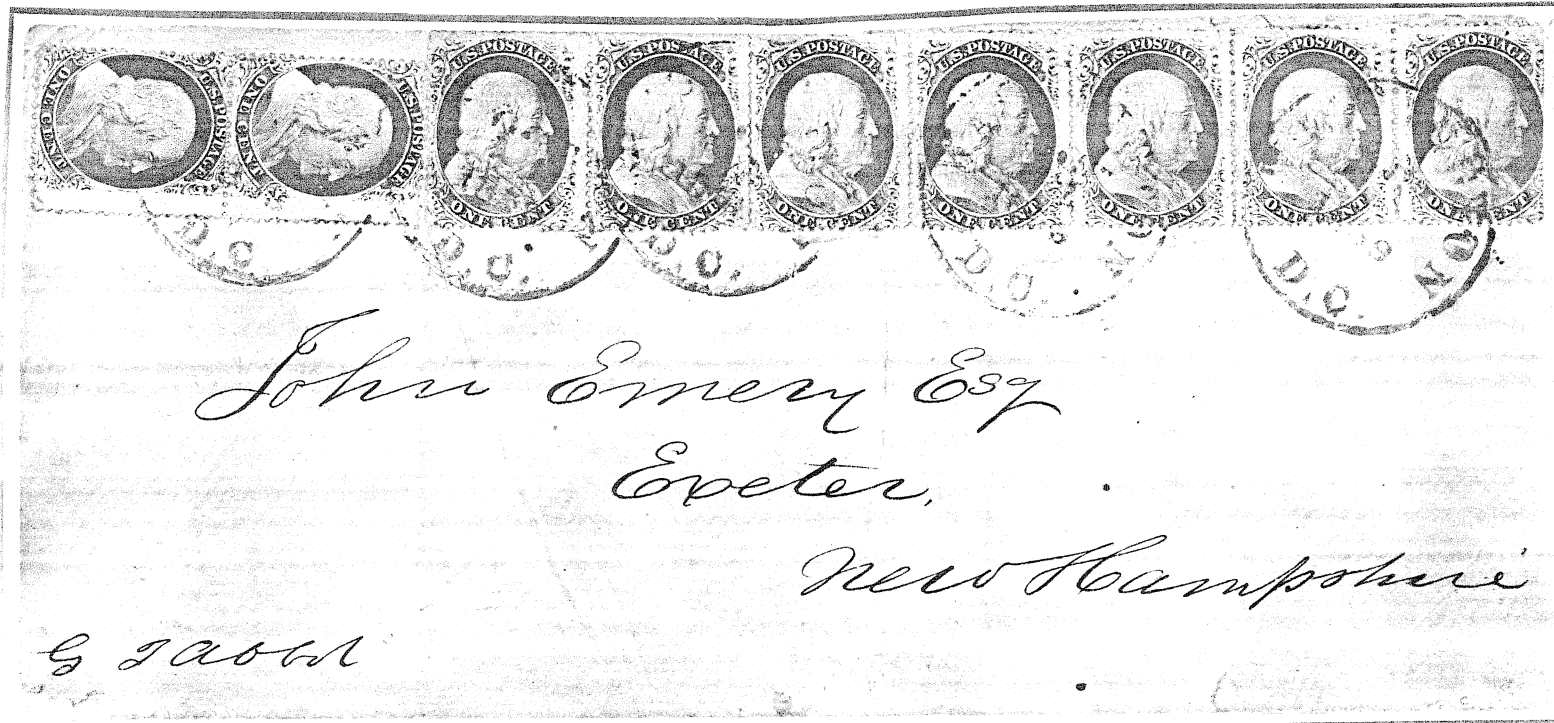 U.S.POSTAGE ONE CENT
U.S.POSTAGE ONE CENT
U.S.POSTAGE ONE CENT
U.S.POSTAGE ONE CENT
U.S.POSTAGE ONE CENT
U.S.POSTAGE ONE CENT
U.S.POSTAGE ONE CENT
U.S.POSTAGE ONE CENT
U.S.POSTAGE ONE CENT
D.C.
D.C.
D.C.
D.C.
D.C.
John Emery Esq
Exeter,
New Hampshire